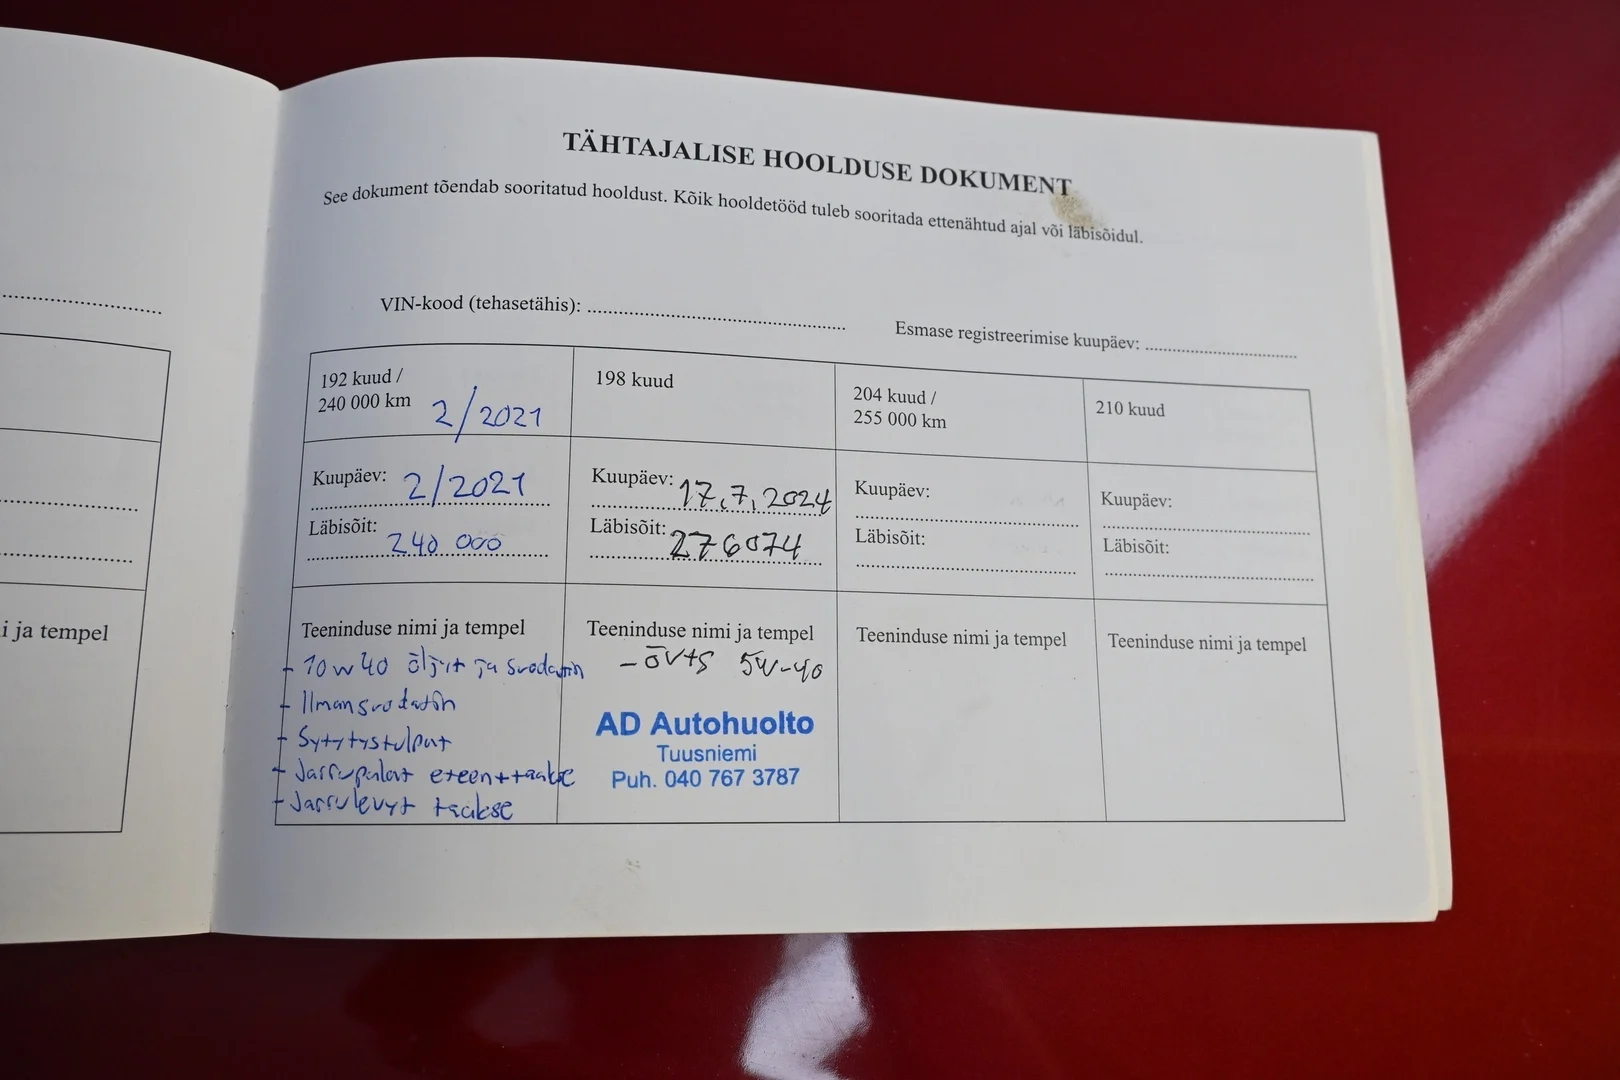 TÄHTAJALISE HOOLDUSE DOKUMENT
See dokument tõendab sooritatud hooldust. Kõik hooldetööd tuleb sooritada ettenähtud ajal või läbisõidul.
VIN-kood (tehasetähis):
Esmase registreerimise kuupäev:
192 kuud /
240 000 km 2/2021
Kuupäev: 2/2021
Läbisõit: 240 000
Teeninduse nimi ja tempel
- 10w40 öljyt ja suodatin
- Ilmansuodatin
- Sytytystulpat
- Jarrupalat eteen+taakse
- Jarrulevyt taakse
198 kuud
Kuupäev: 17.7.2024
Läbisõit: 276074
Teeninduse nimi ja tempel
5W-40
AD Autohuolto
Tuusniemi
Puh. 040 767 3787
204 kuud /
255 000 km
Kuupäev:
Läbisõit:
Teeninduse nimi ja tempel
210 kuud
Kuupäev:
Läbisõit:
Teeninduse nimi ja tempel
i ja tempel